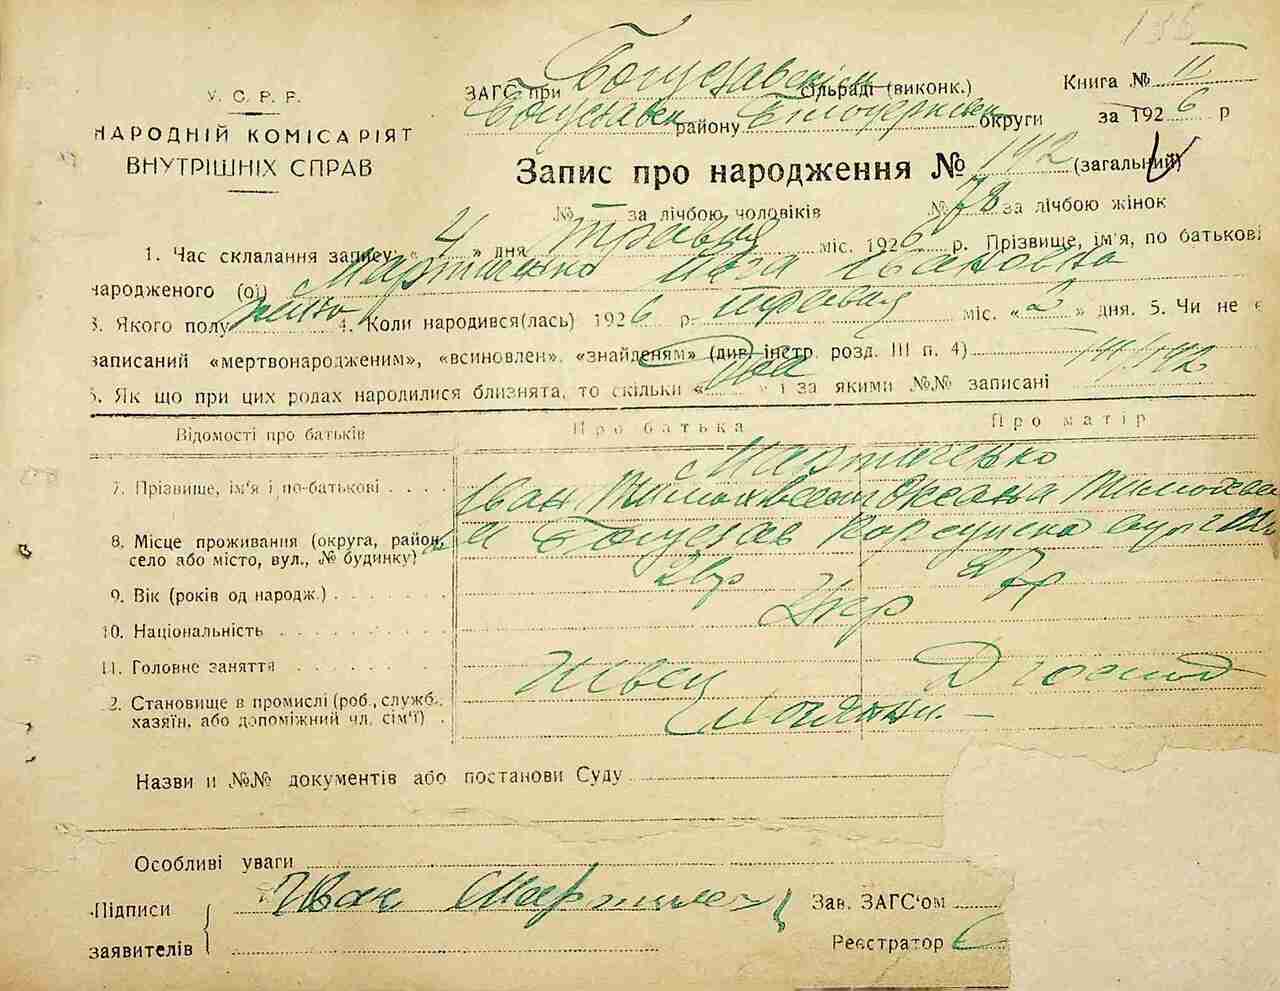 135
У. С. Р. Р.
НАРОДНІЙ КОМІСАРІЯТ
ВНУТРІШНІХ СПРАВ
ЗАГС при Богуславськім сільраді (виконк.)
Богуславськ району Білоцерківськ округи
Книга № II
за 1926 р
Запис про народження № 142 (загальний)
№ — за лічбою чоловіків № 78 за лічбою жінок
1. Час складання запису „ 4 " дня травня міс. 1926 р. Прізвище, ім'я, по батькові
народженого (ої) Івановна
3. Якого полу жіно 4. Коли народився(лась) 1926 р. травня міс. «2» дня. 5. Чи не є
записаний «мертвонародженим», «всиновлен», «знайденям» (див. інстр. розд. III п. 4)
6. Як що при цих родах народилися близнята, то скільки « два » і за якими №№ записані 141/142
Відомості про батьків Про батька Про матір
7. Прізвище, ім'я і по-батькові . . . . Іван Оксана
8. Місце проживання (округа, район, м Богуслав Корсунська
село або місто, вул., № будинку)
9. Вік (років од народж.) . . . . . . .
10. Національність . . . . . . . . . . Укр
11. Головне заняття . . . . . . Швец Д господ
12. Становище в промислі (роб., служб.,
хазяїн, або допоміжний чл. сім'ї) .
Назви и №№ документів або постанови Суду
Особливі уваги
Підписи Іван Зав. ЗАГС'ом
заявителів Реєстратор